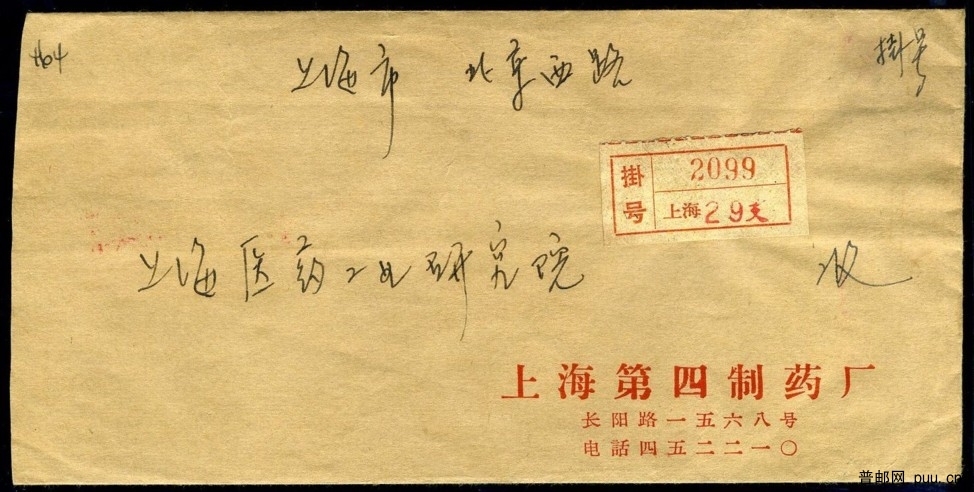 H64
上海市 北京西路
挂号
掛号 2099
上海29支
上海医药工业研究院 收
上海第四制药厂
长阳路一五六八号
电話四五二二一〇
普邮网 puu.cn